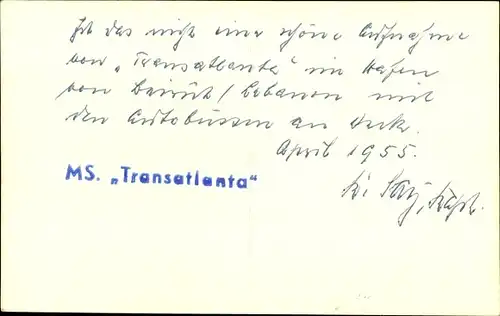 Ist das nicht eine schöne Aufnahme
von „Transatlanta“ im Hafen
von Beirut / Lebanon mit
den Autobussen an Deck.
April 1955.
MS. „Transatlanta“